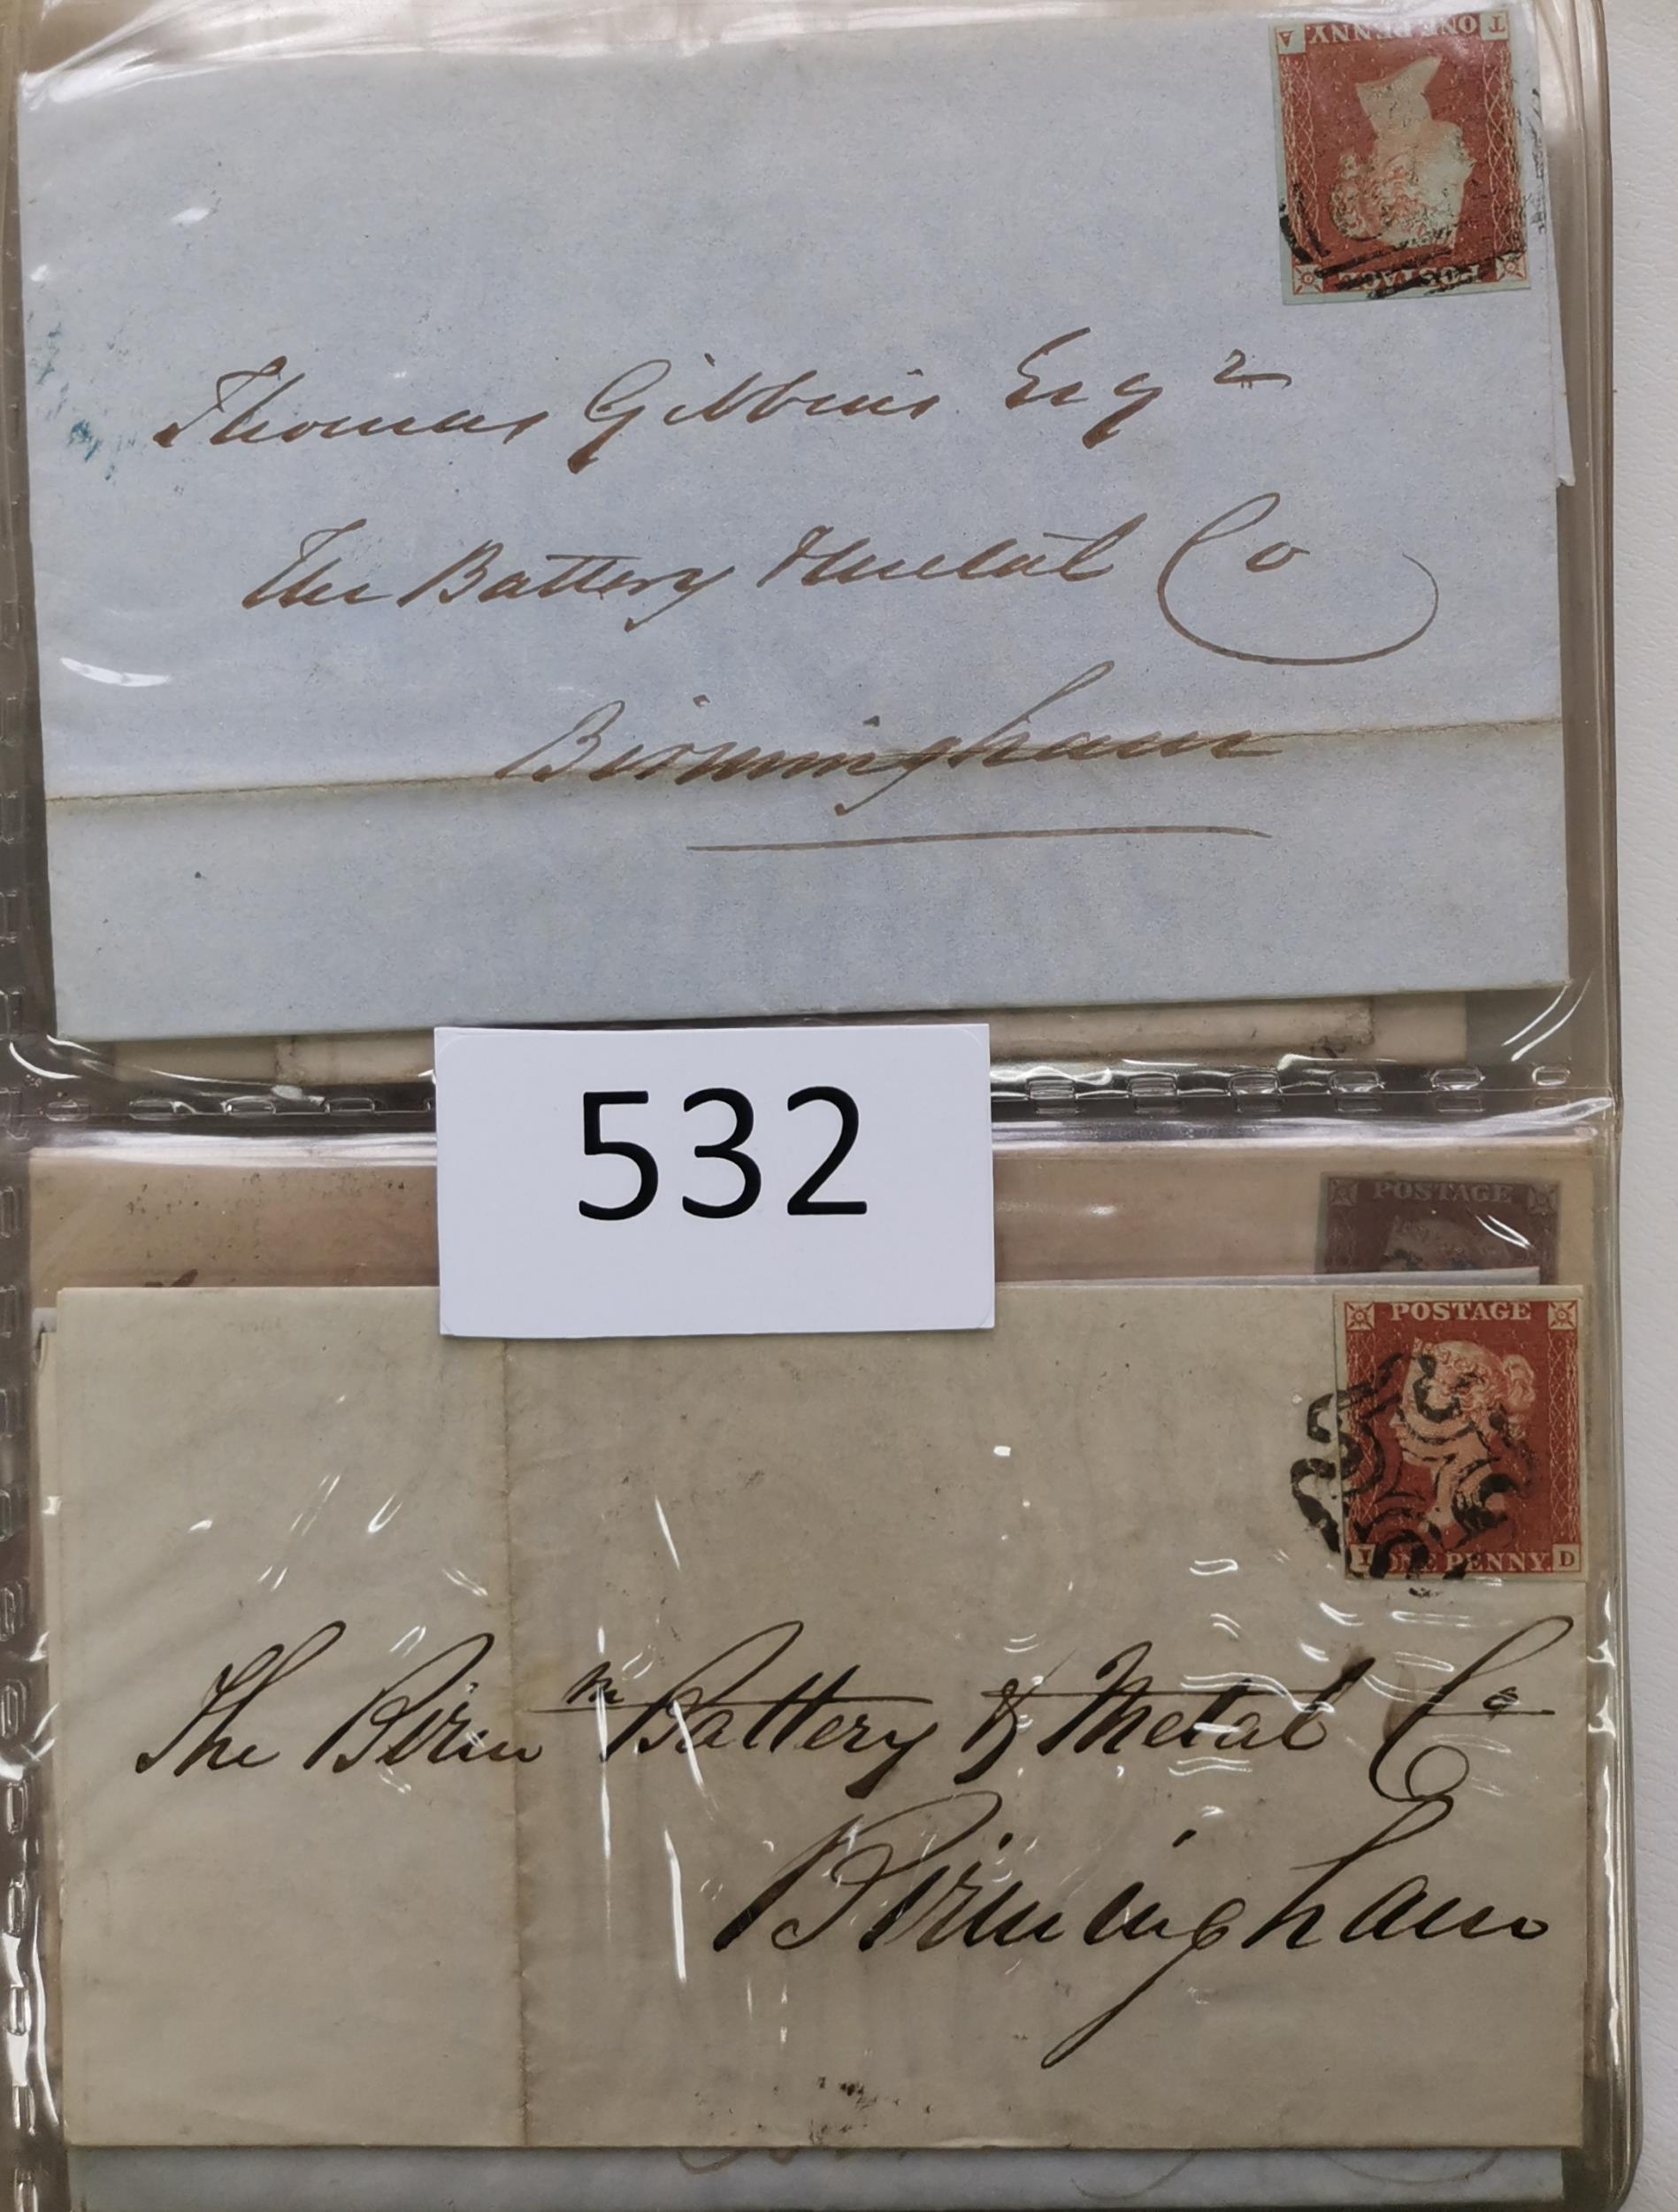 T ONE PENNY A
POSTAGE
Thomas Gibbins Esqr
The Battery Metal Co
Birmingham
532
POSTAGE
POSTAGE
I ONE PENNY. D
The Birmm Battery & Metal Co
Birmingham